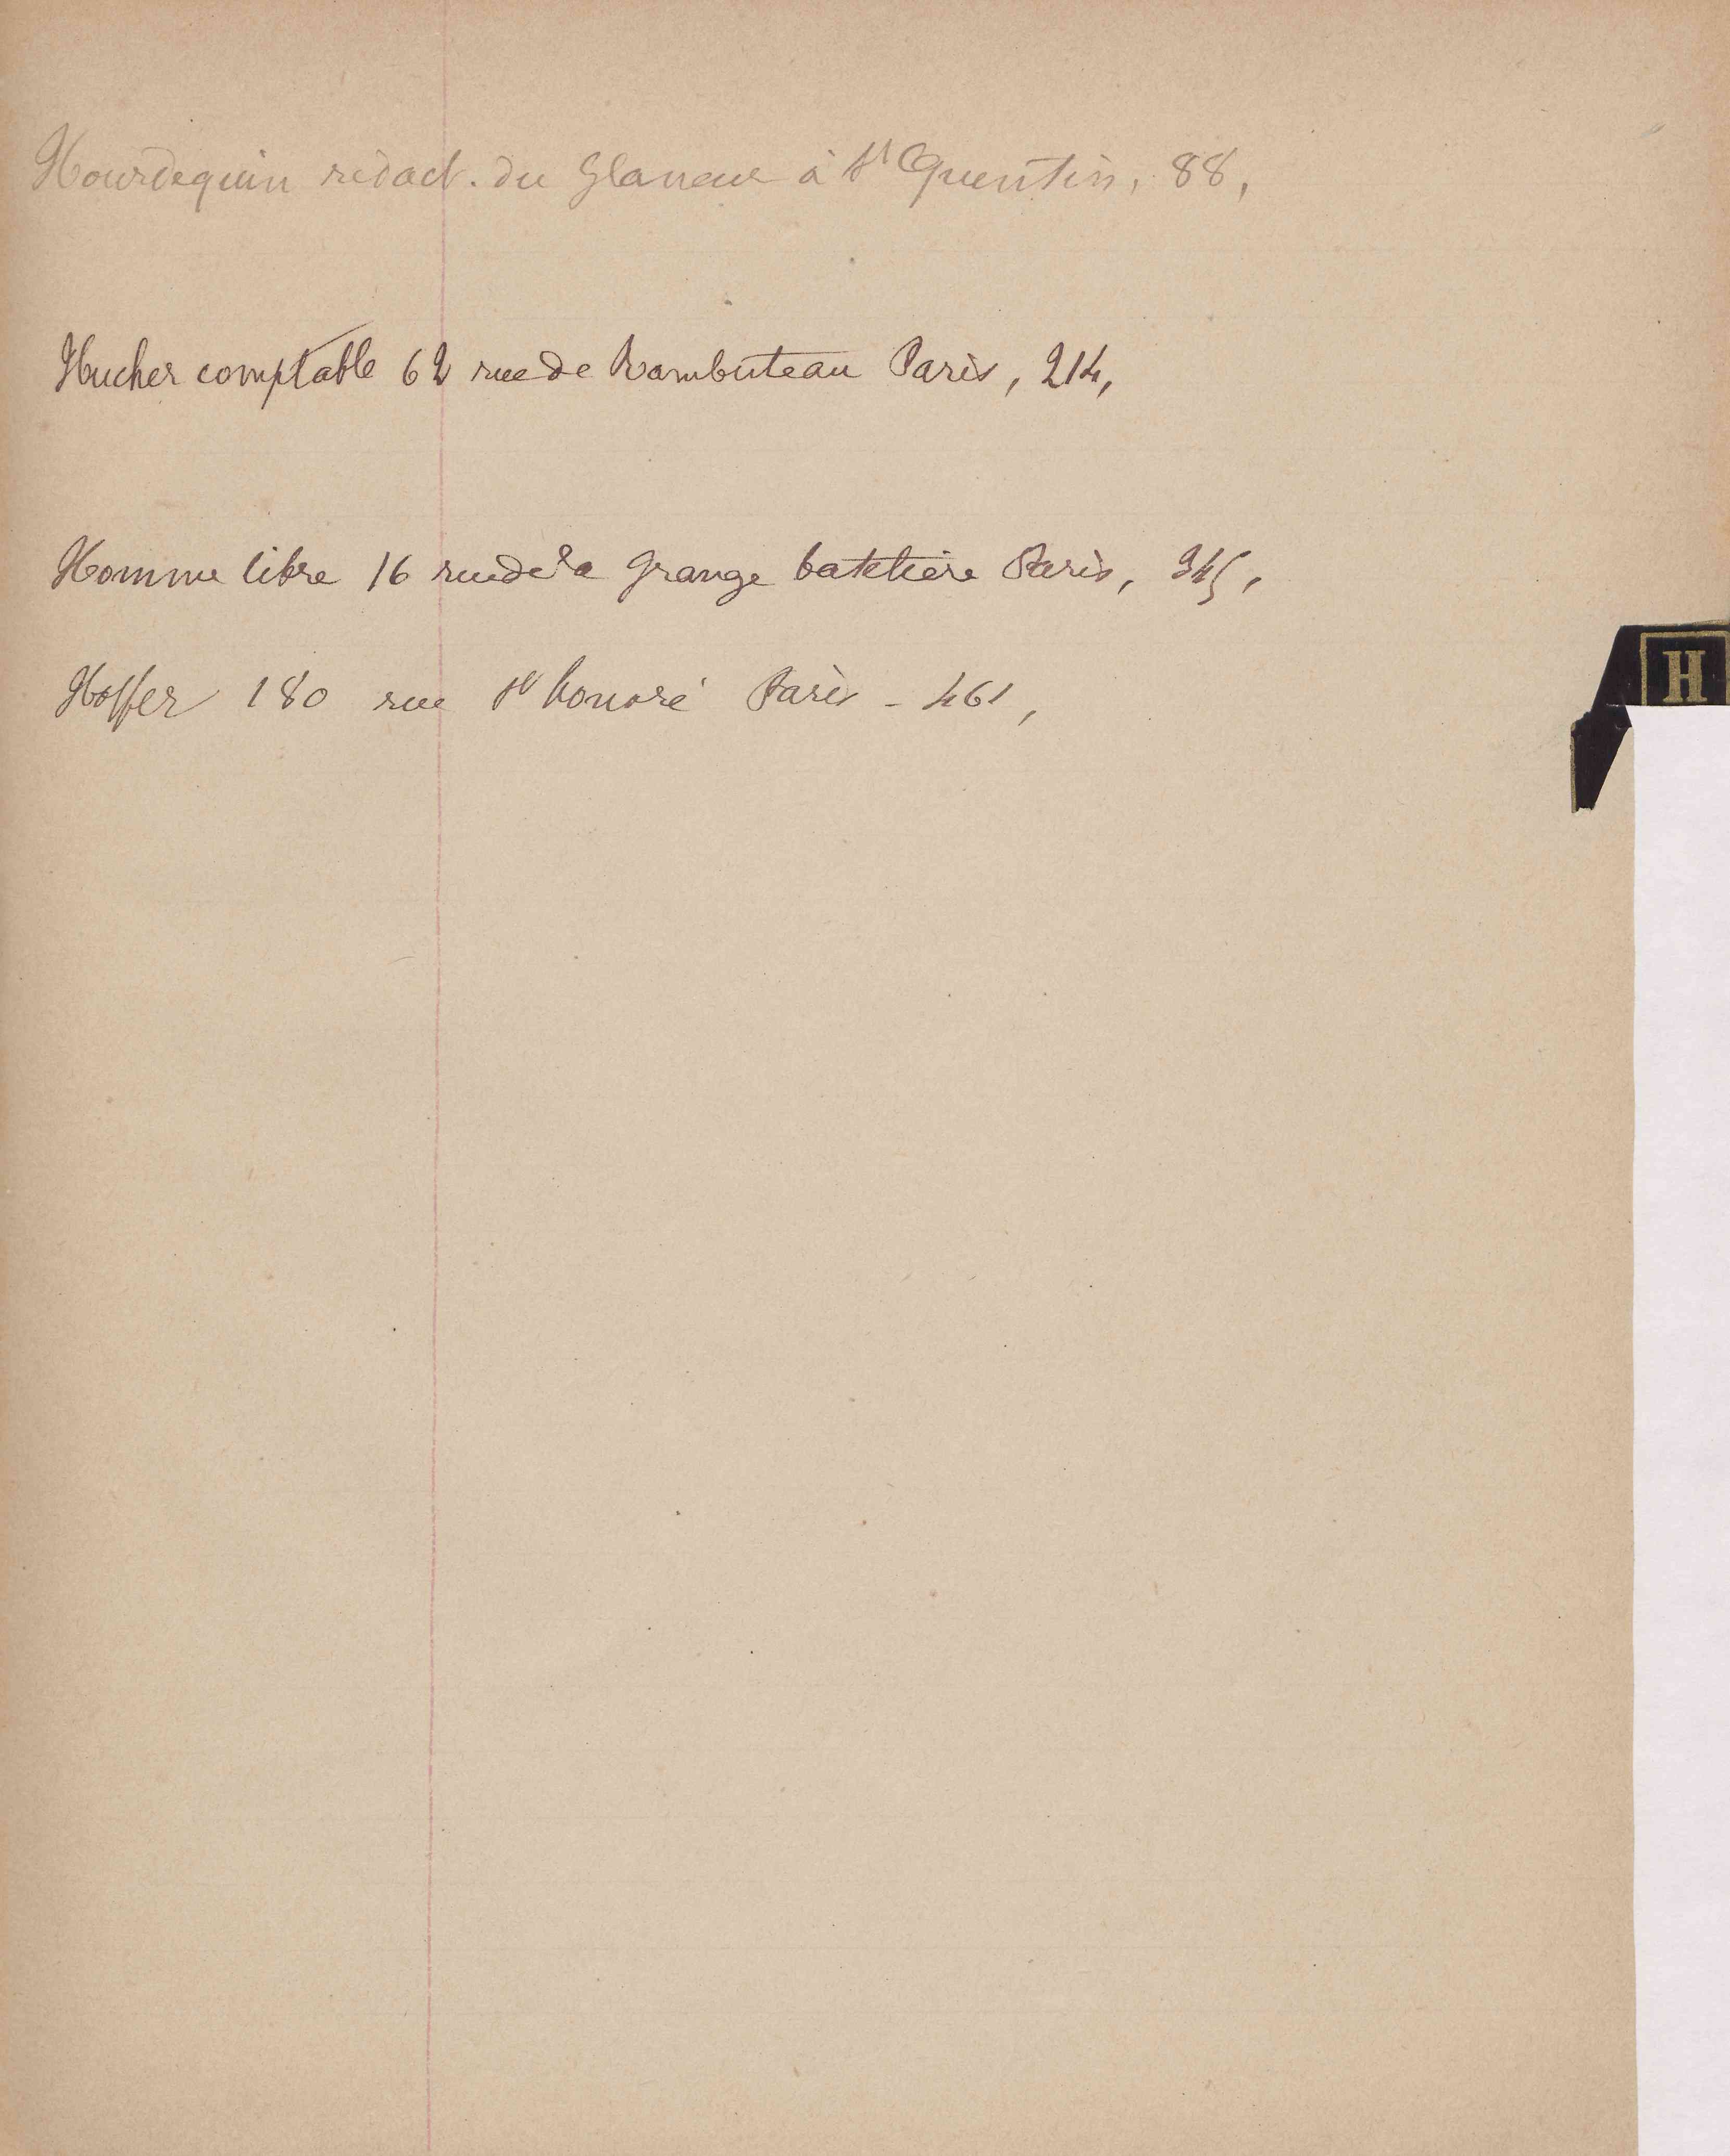 Hourdequin rédact. du Glaneur à St Quentin, 88,
Hucher comptable 62 rue de Rambuteau Paris, 214,
Homme libre 16 rue de la Grange batelière Paris, 345,
H
Hoffer 180 rue St honoré Paris - 461,